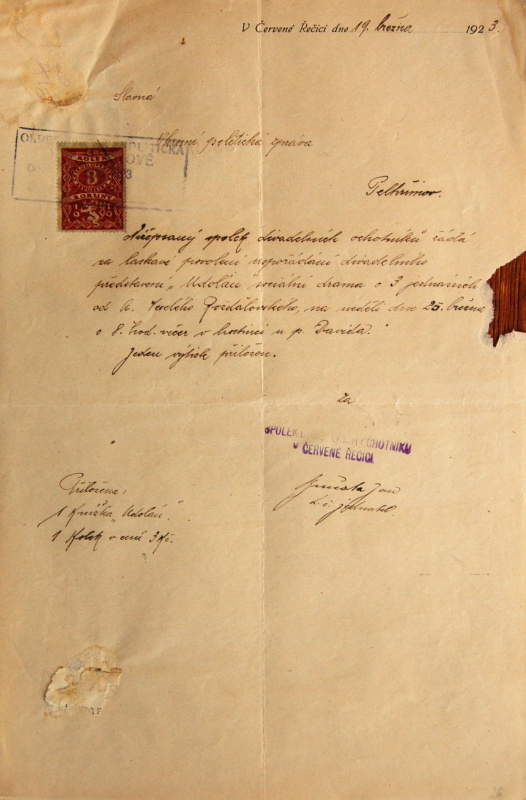 V Červené Řečici dne 19. března 1923.
Slavná
Okresní politická správa
KOLEK
3
KORUNY
Pelhřimov.
spolek divadelních ochotníků žádá
za laskavé povolení uspořádání divadelního
představení „Udoláni" sociální drama o 3 jednáních
od A. Veselého na neděli dne 25. března
o 8. hod. večer v hostinci u p. Davida.
Jeden výtisk přiložen.
Za
SPOLEK OCHOTNÍKŮ
v ČERVENÉ ŘEČICI
Jan
t. č. jednatel.
Přiložena:
1 knížka „Udoláni"
1 Kolek v ceně 3 Kč.